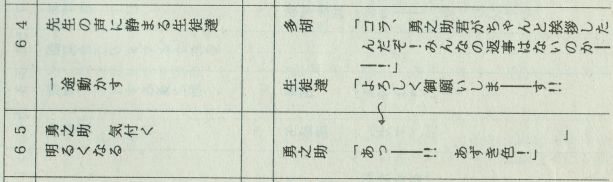 64
先生の声に静まる生徒達
多胡
「コラ、勇之助君がちゃんと挨拶した
んだぞ!みんなの返事はないのか―
―!」
一途動かす
生徒達
「よろしく御願いしま――す!!
65
勇之助 気付く
65
明るくなる
勇之助
「あっ――!! あずき色!」